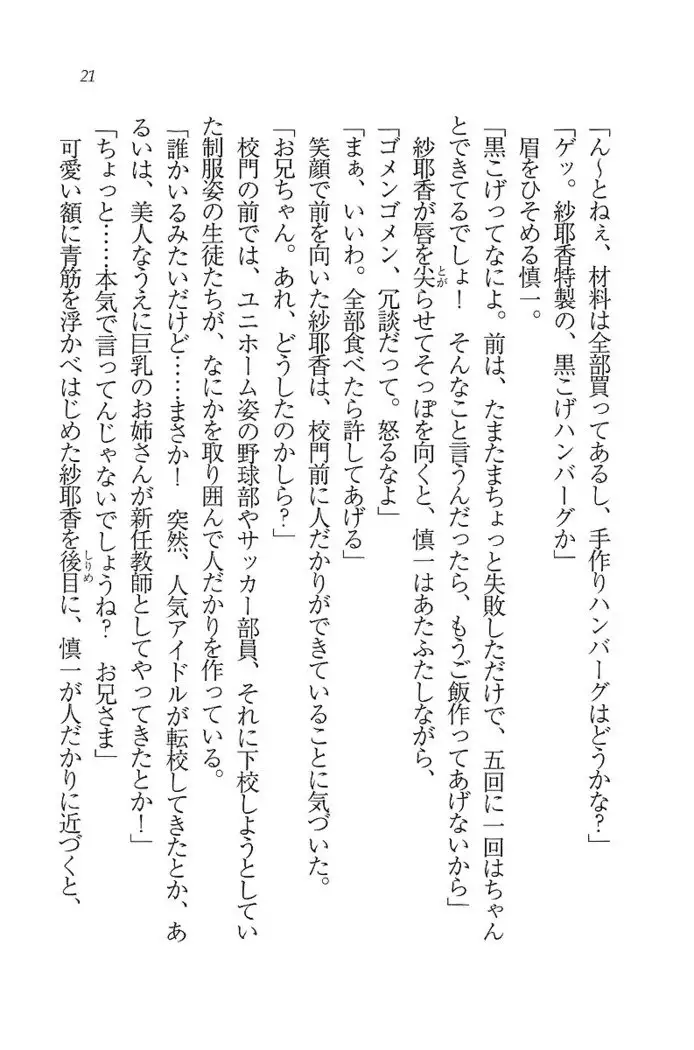 21
「ん～とねぇ、材料は全部買ってあるし、手作りハンバーグはどうかな？」
「ゲッ。紗耶香特製の、黒こげハンバーグか」
眉をひそめる慎一。
「黒こげってなによ。前は、たまたまちょっと失敗しただけで、五回に一回はちゃん
とできてるでしょ！　そんなこと言うんだったら、もうご飯作ってあげないから」
紗耶香が唇を尖らせてそっぽを向くと、慎一はあたふたしながら、
「ゴメンゴメン、冗談だって。怒るなよ」
「まぁ、いいわ。全部食べたら許してあげる」
笑顔で前を向いた紗耶香は、校門前に人だかりができていることに気づいた。
「お兄ちゃん。あれ、どうしたのかしら？」
校門の前では、ユニホーム姿の野球部やサッカー部員、それに下校しようとしてい
た制服姿の生徒たちが、なにかを取り囲んで人だかりを作っている。
「誰かいるみたいだけど……まさか！　突然、人気アイドルが転校してきたとか、あ
るいは、美人なうえに巨乳のお姉さんが新任教師としてやってきたとか！」
「ちょっと……本気で言ってんじゃないでしょうね？　お兄さま」
可愛い額に青筋を浮かべはじめた紗耶香を後目に、慎一が人だかりに近づくと、
とが
しりめ